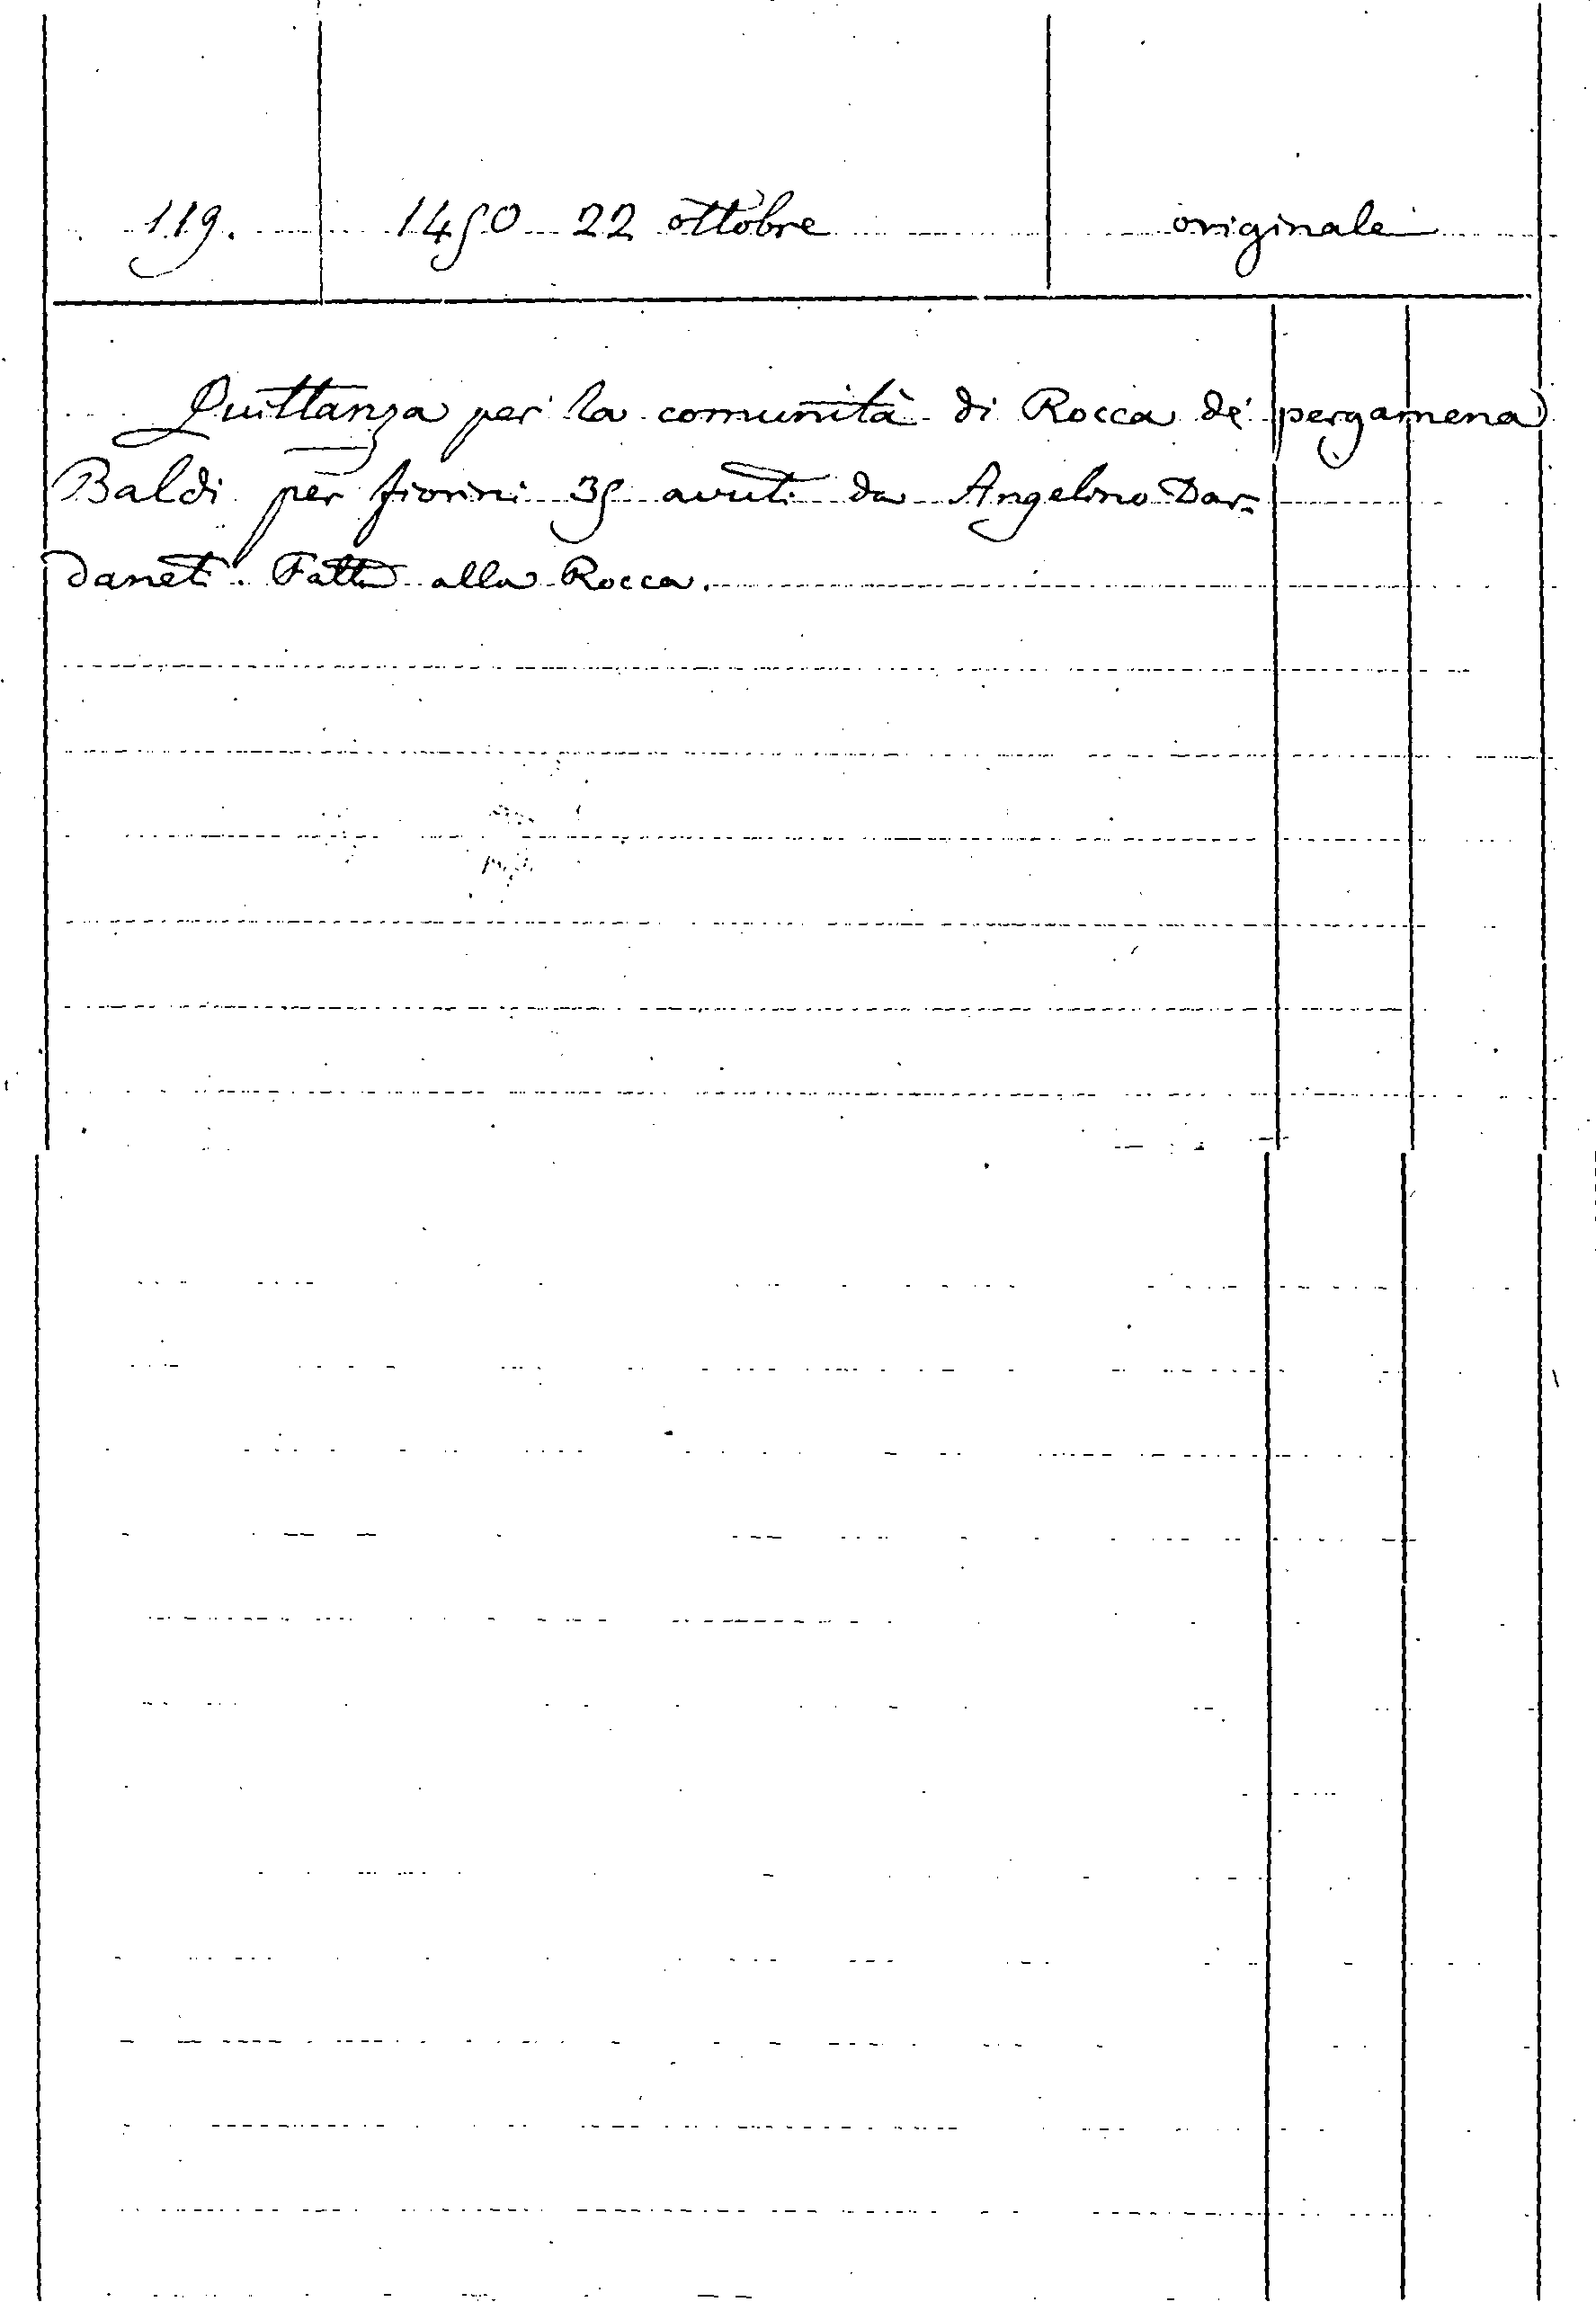 119. 1450 22 ottobre originale
Quittanza per la comunità di Rocca de' pergamena
Baldi per fiorini 35 avuti da Angelino Dar-
daneti. Fatta alla Rocca.